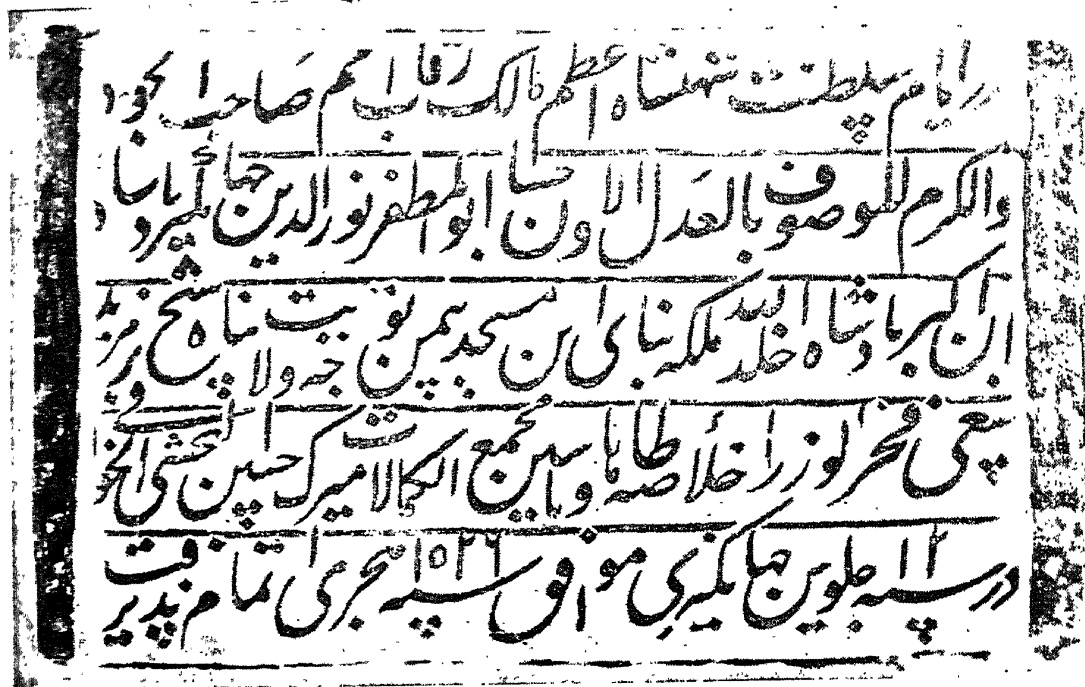 در ایام سلطنت شهنشاه اعظم مالک رقاب امم صاحب الجود
والکرم الموصوف بالعدل الاحسان ابوالمظفر نورالدین جهانگیر بادشاه
ابن اکبر بادشاه خلد الله ملکه بنای این مسجد بیمن توجه ولایت پناه شیخ
بسعی فخر الوزرا خلاصه طاها و یاسین مجمع الکمالات میرک حسین بخشی
در سنه ۱۲ جلوس جهانگیری موافق سنه هجری اتمام پذیرفت